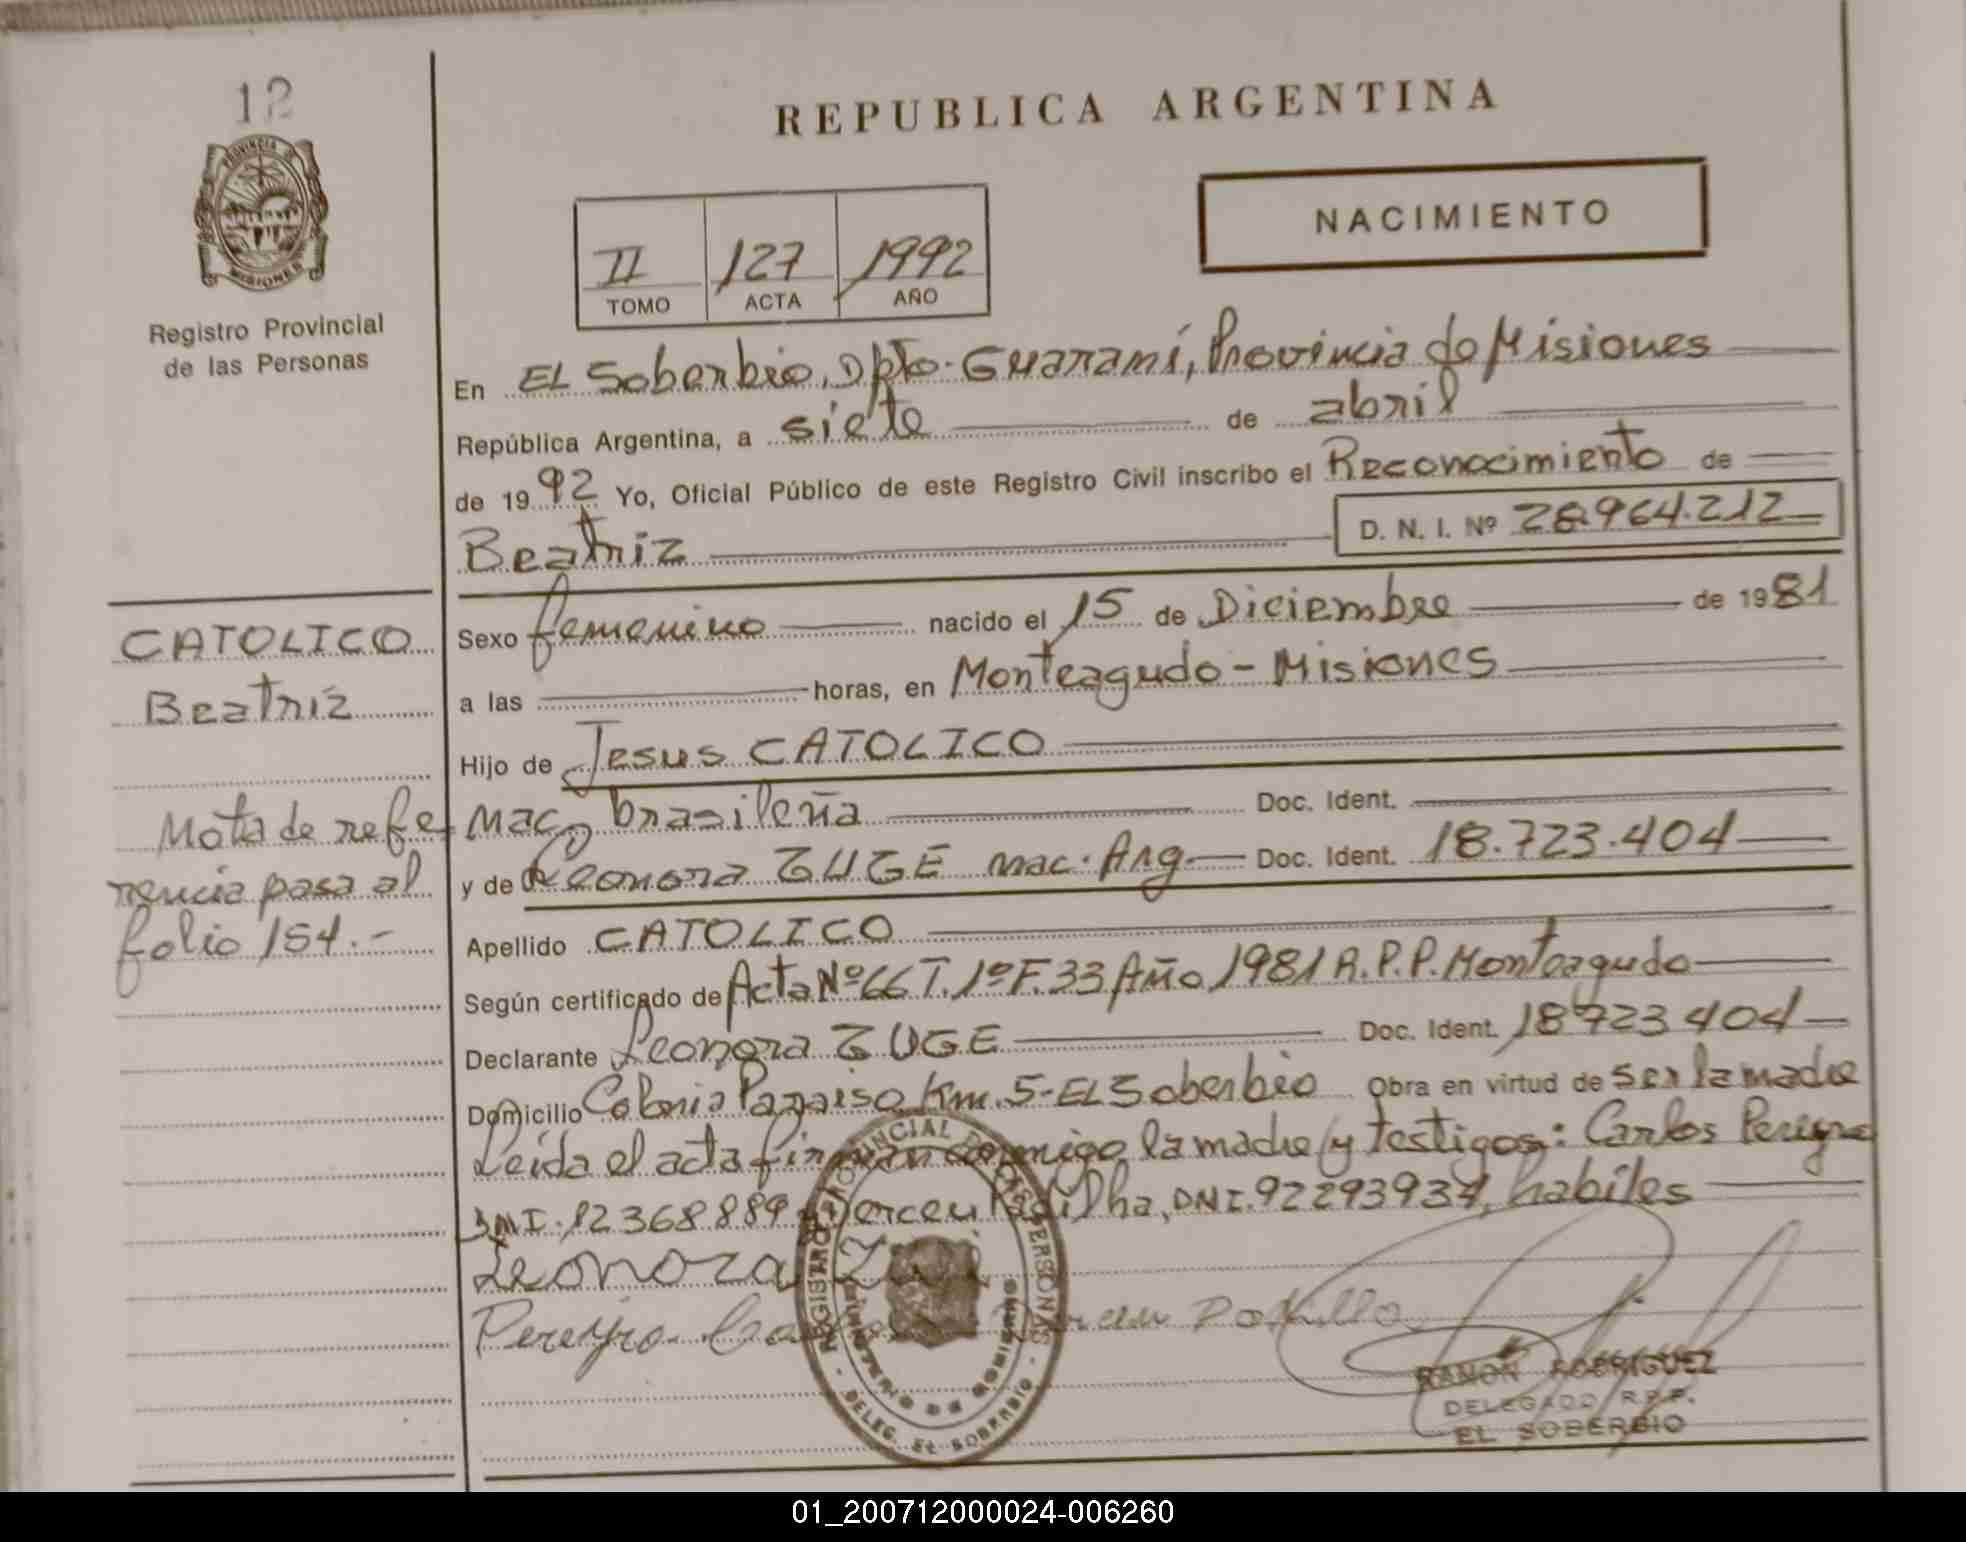 12
PROVINCIA DE
MISIONES
Registro Provincial
de las Personas
REPUBLICA ARGENTINA
NACIMIENTO
II 127 1992
TOMO ACTA AÑO
En EL Soberbio, Dpto. Guaraní, Provincia de Misiones
República Argentina, a siete de abril
de 1992 Yo, Oficial Público de este Registro Civil inscribo el Reconocimiento de
Beatriz D. N. I. Nº 28.964.212
CATOLICO
Beatriz
Nota de refe-
rencia pasa al
folio 154.-
Sexo femenino nacido el 15 de Diciembre de 1981
a las horas, en Monteagudo - Misiones
Hijo de Jesus CATOLICO
nac. brasileña Doc. Ident.
y de Leonora ZUGE nac. Arg. Doc. Ident. 18.723.404
Apellido CATOLICO
Según certificado de Acta Nº 66 T. 1º F. 33 Año 1981 R.P.P. Monteagudo
Declarante Leonora ZUGE Doc. Ident. 18723404
Domicilio Colonia Paraiso Km. 5 - EL Soberbio Obra en virtud de ser la madre
Leída el acta firman conmigo la madre y testigos: Carlos Pereyra
DNI. 12368889 DNI. 92293937, habiles
Leonora
Pereyra
REGISTRO PROVINCIAL DE LAS PERSONAS
MINISTERIO DE GOBIERNO
- DELEG. EL SOBERBIO -
RAMON RODRIGUEZ
DELEGADO R.P.P.
EL SOBERBIO
01_200712000024-006260